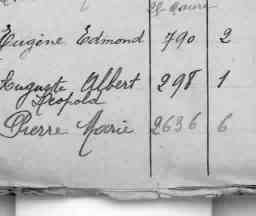 Eugène Edmond 790 2
Auguste Albert 298 1
Léopold
Pierre Marie 2636 6